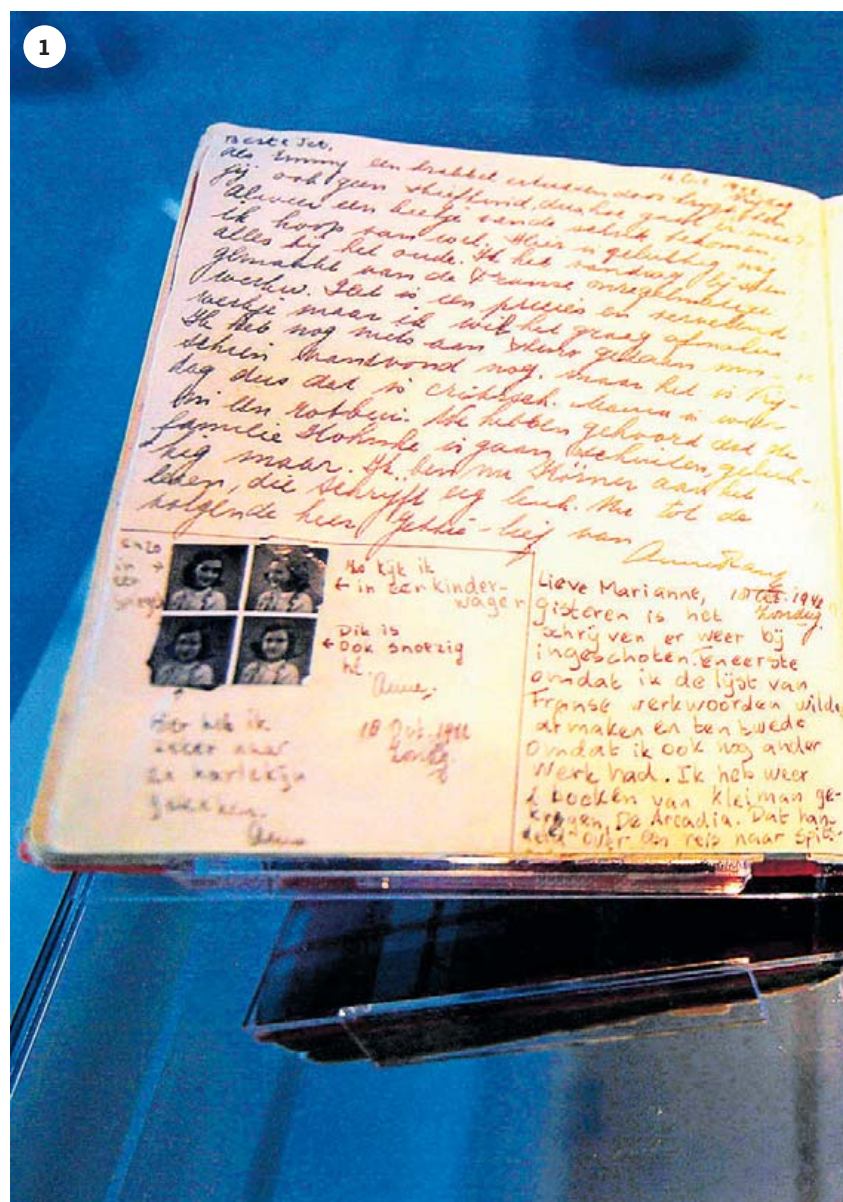 1
Beste Jet,
16 Oct. 1942
Vrijdag
Als Emmy een krabbel
jij ook geen
Alweer een beetje van de schrik bekomen
ik hoop van wel. Hier is gelukkig nog
alles bij het oude. Ik heb vandaag lijsten
gemaakt van de Franse onregelmatige
werkw. Dat is een precies en vervelend
werkje maar ik wil het graag afmaken
Ik heb nog niets aan gedaan mis-
schien vanavond nog. maar het is Vrij-
dag dus dat is critisch. Mama is weer
in een robbui. We hebben gehoord dat de
familie is gaan schuilen, geluk-
kig maar. Ik ben nu Körner aan het
lezen, die schrijft erg leuk. Nu tot de
volgende keer Jettie-lief van
Anne Frank
En zo
in
een
spiegel
Zo kijk ik
in een kinder-
wagen
Dit is
ook snoezig
hé.
Anne.
Hier heb ik
zeker naar
en harlekijn
gekeken.
Anne
18 Oct. 1942
Zondag
Lieve Marianne, 18 Oct. 1942
Zondag.
gisteren is het
schrijven er weer bij
ingeschoten. Ten eerste
omdat ik de lijst van
Franse werkwoorden wilde
afmaken en ten twede
omdat ik ook nog ander
werk had. Ik heb weer
2 boeken van Kleiman ge-
kregen, De Arcadia. Dat han-
deld over een reis naar Spits-